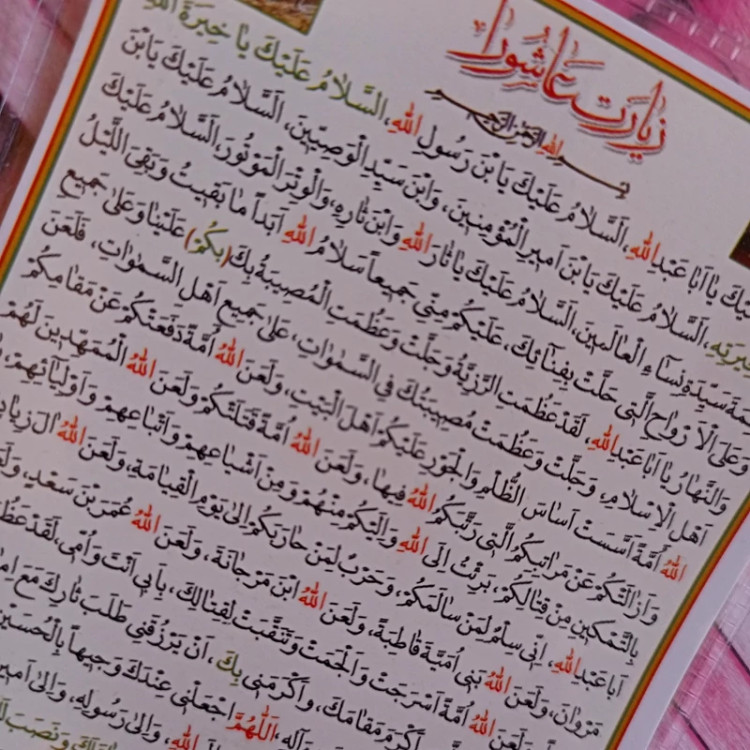 زیارت عاشورا
بسم الله الرحمن الرحیم
یْكَ یا اَبا عَبْدِ اللهِ، اَلسَّلامُ عَلَیْكَ یَا بْنَ رَسُولِ اللهِ، اَلسَّلامُ عَلَیْكَ یا خِیَرَةَ اللهِ
خِیَرَتِهِ، اَلسَّلامُ عَلَیْكَ یَا بْنَ اَمیرِ الْمُؤْمِنینَ، وَابْنَ سَیِّدِ الْوَصِیّینَ، اَلسَّلامُ عَلَیْكَ یَابْنَ
مَةَ سَیِّدَةِ نِسآءِ الْعالَمینَ، اَلسَّلامُ عَلَیْكَ یا ثارَ اللهِ وَابْنَ ثارِهِ، وَالْوِتْرَ الْمَوْتُورَ، اَلسَّلامُ عَلَیْكَ
وَعَلَی الْاَرْواحِ الَّتی حَلَّتْ بِفِنائِكَ، عَلَیْكُمْ مِنّی جَمیعاً سَلامُ اللهِ اَبَداً ما بَقیتُ وَبَقِیَ اللَّیْلُ
وَالنَّهارُ یا اَبا عَبْدِ اللهِ، لَقَدْ عَظُمَتِ الرَّزِیَّةُ وَجَلَّتْ وَعَظُمَتِ الْمُصیبَةُ بِكَ (بِكُمْ) عَلَیْنا وَعَلی جَمیعِ
اَهْلِ الْاِسْلامِ، وَجَلَّتْ وَعَظُمَتْ مُصیبَتُكَ فِی السَّمواتِ، عَلی جَمیعِ اَهْلِ السَّمواتِ، فَلَعَنَ
اللهُ اُمَّةً اَسَّسَتْ اَساسَ الظُّلْمِ وَالْجَوْرِ عَلَیْكُمْ اَهْلَ الْبَیْتِ، وَلَعَنَ اللهُ اُمَّةً دَفَعَتْكُمْ عَنْ مَقامِكُمْ
وَاَزالَتْكُمْ عَنْ مَراتِبِكُمُ الَّتی رَتَّبَكُمُ اللهُ فیها، وَلَعَنَ اللهُ اُمَّةً قَتَلَتْكُمْ وَلَعَنَ اللهُ الْمُمَهِّدینَ لَهُمْ
بِالتَّمْكینِ مِنْ قِتالِكُمْ، بَرِئْتُ اِلَی اللهِ وَاِلَیْكُمْ مِنْهُمْ وَمِنْ اَشْیاعِهِمْ وَاَتْباعِهِمْ وَاَوْلِیآئِهِمْ،
اَبا عَبْدِ اللهِ اِنّی سِلْمٌ لِمَنْ سالَمَكُمْ، وَحَرْبٌ لِمَنْ حارَبَكُمْ اِلی یَوْمِ الْقِیامَةِ، وَلَعَنَ اللهُ الَ زِیادٍ
مَرْوانَ، وَلَعَنَ اللهُ بَنی اُمَیَّةَ قاطِبَةً، وَلَعَنَ اللهُ ابْنَ مَرْجانَةَ، وَلَعَنَ اللهُ عُمَرَ بْنَ سَعْدٍ،
وَلَعَنَ اللهُ اُمَّةً اَسْرَجَتْ وَاَلْجَمَتْ وَتَنَقَّبَتْ لِقِتالِكَ، بِاَبی اَنْتَ وَاُمّی، لَقَدْ
اَكْرَمَ مَقامَكَ، وَاَكْرَمَنی بِكَ، اَنْ یَرْزُقَنی طَلَبَ ثارِكَ مَعَ
وَآلِهِ، اَللّهُمَّ اجْعَلْنی عِنْدَكَ وَجیهاً بِالْحُسَیْنِ
اللهِ، وَاِلی رَسُولِهِ، وَاِلی
وَنَصَبَ